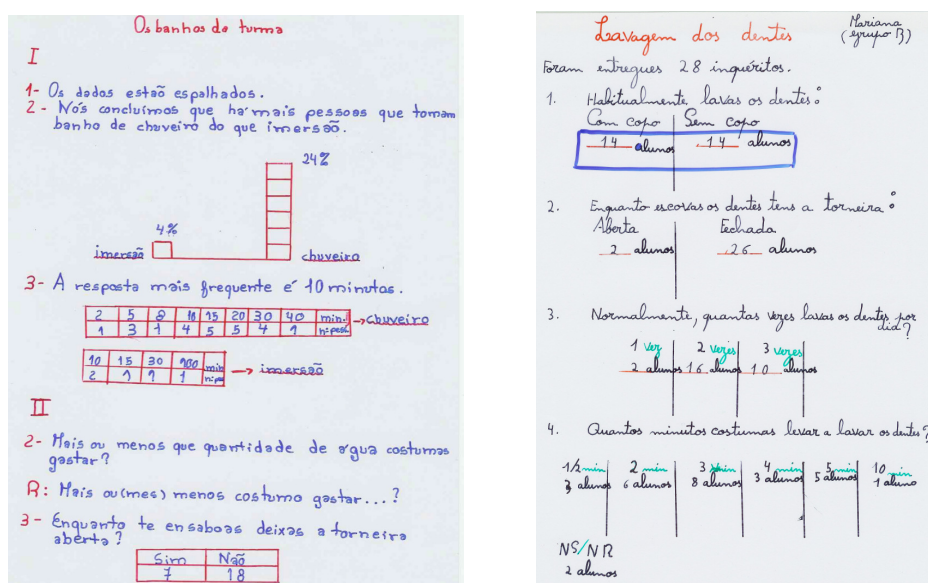 Os banhos da turma
I
1- Os dados estaõ espalhados.
2- Nós concluímos que há mais pessoas que tomam
banho de chuveiro do que imersaõ.
24%
4%
imersaõ
chuveiro
3- A resposta mais frequente é 10 minutos.
2 5 8 10 15 20 30 40 min. → chuveiro
1 3 1 4 5 5 4 1
10 15 30 100 min
2 1 1 1 → imersaõ
II
2- Mais ou menos que quantidade de água costumas
gastar?
R: Mais ou (mes) menos costumo gastar...?
3- Enquanto te ensaboas deixas a torneira
aberta?
Sim Não
7 18
Lavagem dos dentes
Mariana
(grupo B)
Foram entregues 28 inquéritos.
1. Habitualmente lavas os dentes:
Com copo Sem copo
14 alunos 14 alunos
2. Enquanto escovas os dentes tens a torneira:
Aberta Fechada
2 alunos 26 alunos
3. Normalmente, quantas vezes lavas os dentes por
dia?
1 vez 2 vezes 3 vezes
2 alunos 16 alunos 10 alunos
4. Quantos minutos costumas levar a lavar os dentes?
1/2 min 2 min 3 min 4 min 5 min 10 min
3 alunos 6 alunos 8 alunos 3 alunos 5 alunos 1 aluno
NS/NR
2 alunos